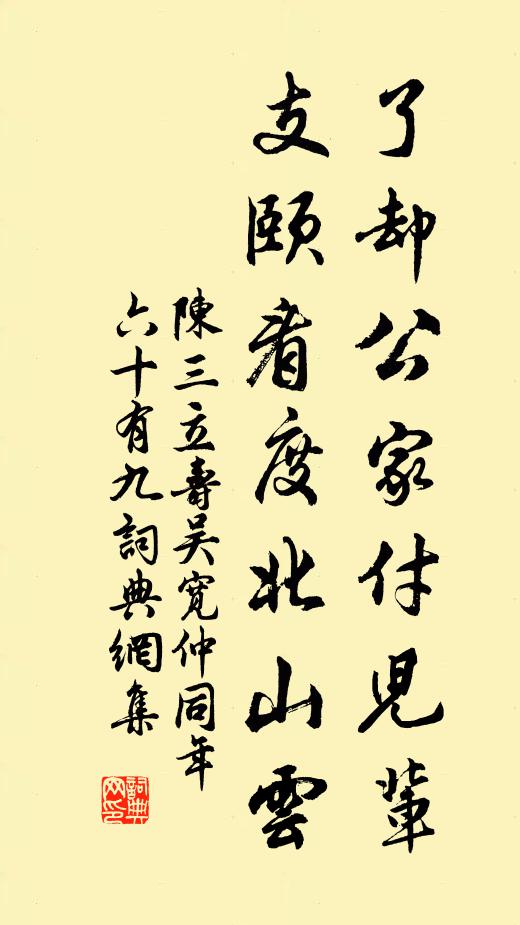 了却公家付児輩
支頤看度北山雲
陳三立壽吳寬仲同年
六十有九詞典網集
詞典
网印